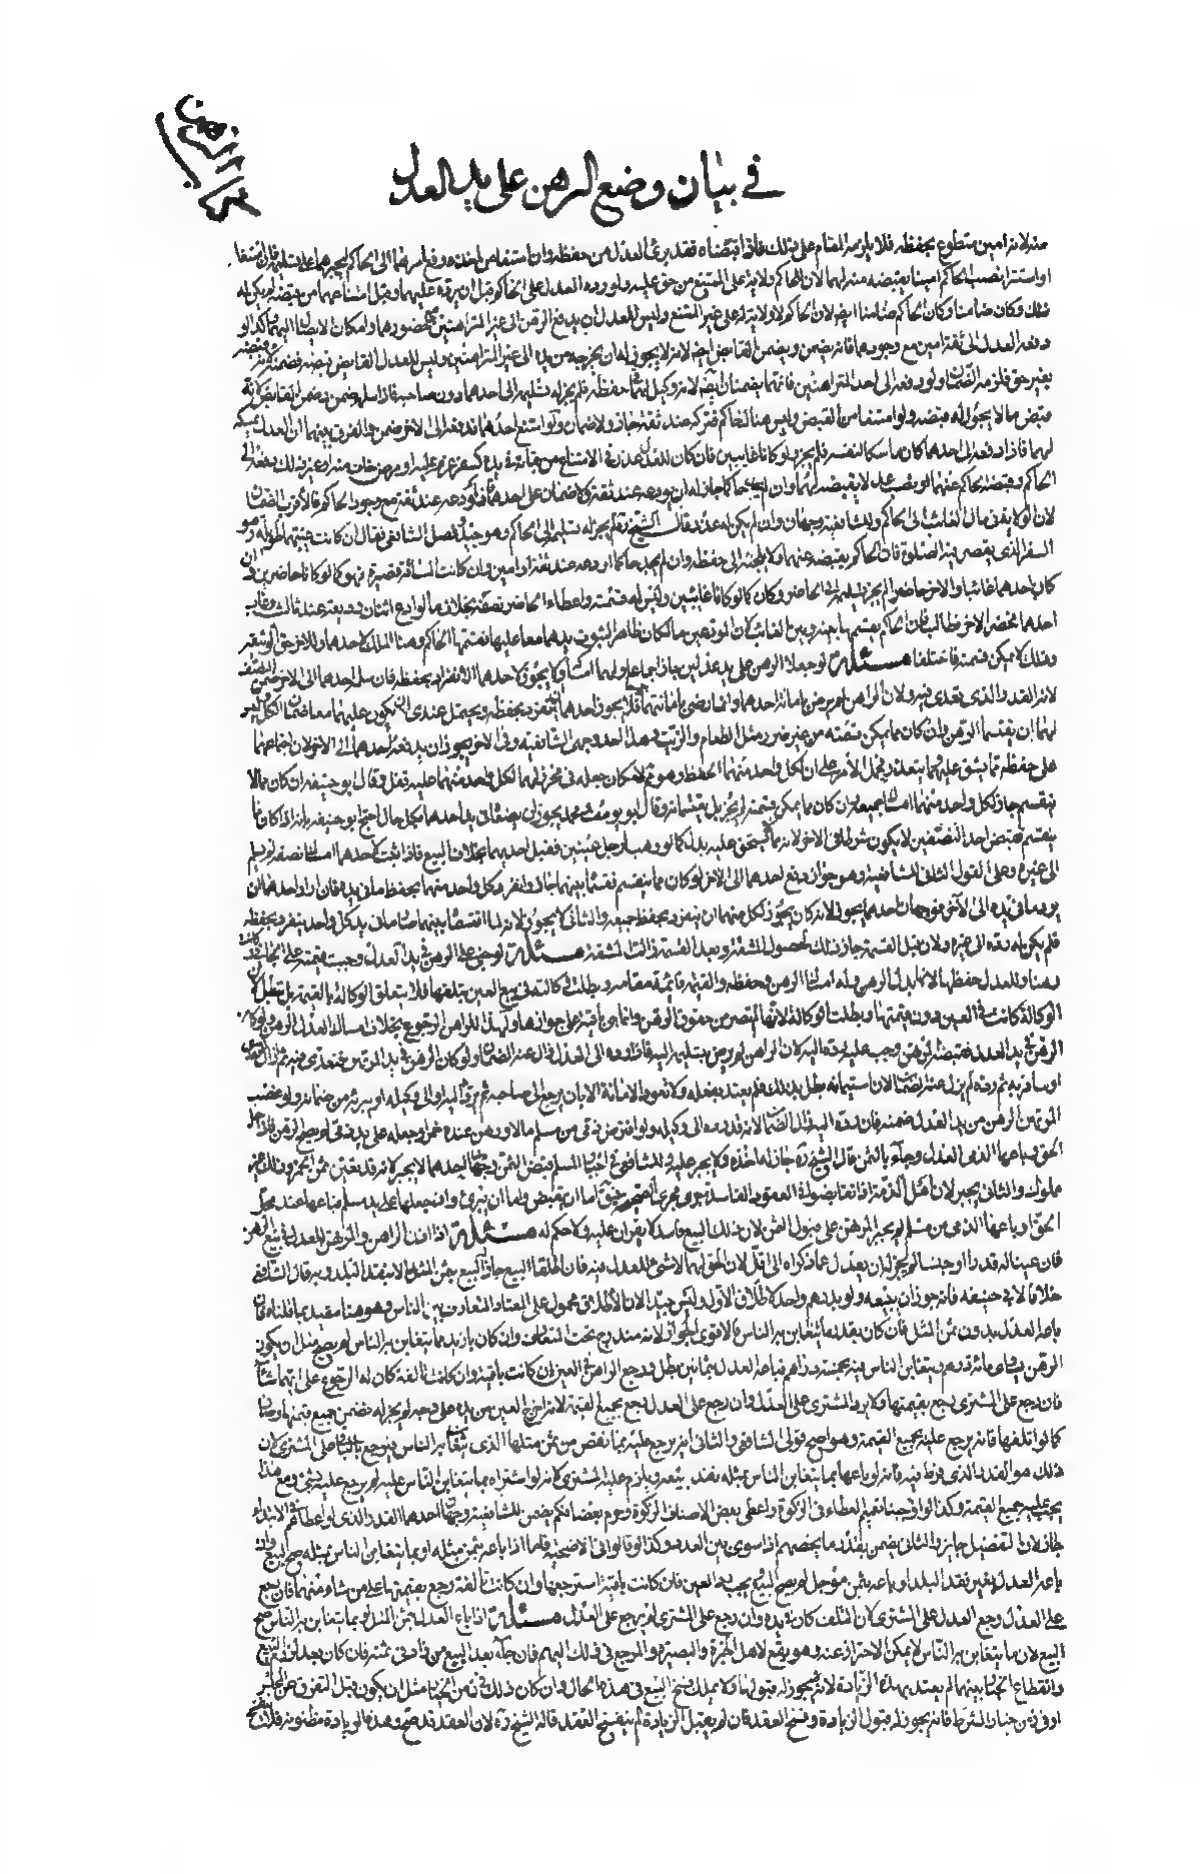 كتاب الرهن
في بيان وضع الرهن على يد العدل
منه لانه امين متطوع بحفظه فلا يلزمه المقام على ذلك فاذا قبضاه فقد برئ العدل من حفظه وان امتنعا من اخذه رفع امرهما الى الحاكم ليجبرهما على تسليمه فان امتنعا
او استترا نصب الحاكم امينا يقبضه منه لهما لان للحاكم ولاية على الممتنع من حق عليه ولو رده العدل على الحاكم قبل ان يرده عليهما وقبل امتناعهما من قبضه لم يكن له
ذلك وكان ضامنا وكان الحاكم ضامنا ايضا لان الحاكم لا ولاية له على غير الممتنع وليس للعدل ان يدفع الرهن الى غير المتراهنين مع حضورهما وامكان الايصال اليهما وكذا لو
دفعه العدل الى ثقة امين مع وجودهما فانه يضمن ويضمن القابض ايضا لانه لا يجوز له ان يخرجه من يده الى غير المتراهنين وليس للعدل القابض قبضه فضمنه لانه قبضه
بغير حق فلزمه الضمان ولو دفعه الى احد المتراهنين فانهما يضمنان ايضا لانه وكيل لهما في حفظه فلم يجز له تسليمه الى احدهما دون صاحبه فاذا سلمه ضمن وضمن القابض لانه
قبض ما لا يجوز له قبضه ولو امتنعا من القبض وليس هناك حاكم فتركه عند ثقة جاز ولا ضمان ولو امتنع احدهما فدفعه الى الاخر ضمن والفرق بينهما ان العدل يمسكه
لهما فاذا دفعه الى احدهما كان ماسكا لنفسه فلم يجز ولو كانا غائبين فان كان للعدل عذر في الامتناع من بقائه في يده كسفر عزم عليه او مرض خاف منه او غير ذلك دفعه الى
الحاكم وقبضه الحاكم عنهما او نصب عدلا يقبضه لهما وان لم يجد حاكما جاز له ان يودعه عند ثقة ولا ضمان على احدهما فلو اودعه عند ثقة مع وجود الحاكم فالاقرب الضمان
لان الولاية في مال الغائب الى الحاكم وللشافعية وجهان وان لم يكن له عذر قال الشيخ ره لم يجز له تسليمه الى الحاكم وهو جيد وفصل الشافعي فقال ان كانت غيبتهما طويلة وهو
السفر الذي يقصر فيه الصلوة فان الحاكم يقبضه عنهما ولا يلجئه الى حفظه وان لم يجد حاكما اودعه عند ثقة امين وان كانت المسافة قصيرة فهو كما لو كانا حاضرين وان
كان احدهما غائبا والاخر حاضرا لم يجز تسليمه الى الحاضر وكان كما لو كانا غائبين وليس له قسمته واعطاء الحاضر نصفه بخلاف ما لو اودع اثنان وديعة عند ثالث وغاب
احدهما فحضر الاخر طالب فان الحاكم يقسمها بينه وبين الغائب لان المودعين مالكان ظاهرا لثبوت يدهما معا عليها فقسمها الحاكم وهنا الملك لاحدهما وللاخر حق الوثيقة
وذلك لا يمكن قسمته فاختلفا مسئلة لو جعلا الرهن على يد عدلين جاز اجماعا ولهما امساكه ولا يجوز لاحدهما الانفراد بحفظه فان سلمه احدهما الى الاخر ضمن النصف
لانه القدر الذي تعدى فيه ولان الراهن لم يرض بامانة احدهما وانما رضي بامانتهما جميعا فلم يجز لاحدهما التفرد بحفظه ويحتمل عندي ان يكون عليهما معا ضمان الكل وليس
لهما ان يقتسما الرهن وان كان مما يمكن قسمته من غير ضرر مثل الطعام والزيت وهذا احد وجهي الشافعية وفي الاخر يجوز ان يدفعه احدهما الى الاخر لان اجتماعهما
على حفظه مما يشق عليهما ويتعذر فيحمل الامر على ان لكل واحد منهما الحفظ وهو ثم لامكان جعله في مخزن لهما لكل واحد منهما عليه قفل وقال ابو حنيفة ان كان مما لا
ينقسم جاز لكل واحد منهما امساك جميعه وان كان مما يمكن قسمته لم يجز بل يقتسمانه وقال ابو يوسف ومحمد يجوز ان يضعاه في يد احدهما بكل حال احتج ابو حنيفة بانه اذا كان مما
ينقسم فقبض احد النصفين لا يكون شرطا في الاخر
الى غيره وعلى القول الثاني للشافعية وهو جواز دفع احدهما الى الاخر لو كان مما ينقسم فقسماه بينهما جاز وانفرد كل واحد منهما بحفظ ما في يده فان اراد احدهما ان
يرد ما في يده الى الاخر فوجهان احدهما يجوز لانه كان يجوز لكل منهما ان ينفرد بحفظ جميعه والثاني لا يجوز لانه لما اقتسما
فلم يكن له رده الى غيره ولان قبل القسمة جاز ذلك لحصول المشقة وبعد القسمة زالت المشقة مسئلة لو جنى على الرهن في يد العدل وجبت قيمته على الجاني وكانت
رهنا وللعدل حفظها لانها بدل الرهن وله امساك الرهن وحفظه والقيمة قائمة مقامه وبطلت وكالته في بيع العين بتلفها فلا يتعلق الوكالة بالقيمة بل تبطل لان
الوكالة كانت في العين دون قيمتها
الرهن في يد العدل فقبضه المرتهن وجب عليه رده اليه لان الراهن لم يرض بتسليمه اليه فاذا رده الى العدل زال عنه الضمان ولو كان الرهن في يد المرتهن فتعدى فيه ثم زال التعدي
او سافر به ثم رده لم يزل عنه الضمان لان استيمانه بطل بذلك فلم يعد بفعله ولا تعود الامانة الا بان يرجع الى صاحبه ثم يرده اليه او الى وكيله او يبرئه من ضمانه ولو غصب
المرتهن الرهن من يد العدل ضمنه فان رده اليه زال الضمان لانه قد رده الى وكيله ولو اقترض ذمي من مسلم مالا ورهن عنده خمرا وجعله على يد ذمي لم يصح الرهن فاذا حل
الحق وباعها الذمي العدل وجاء بالثمن قال الشيخ ره جاز له اخذه ولا يجبر عليه وللشافعي في اجبار المسلم بقبض الثمن وجهان احدهما لا يجبر لانه قد تعين ثمن الخمر وذلك غير
مملوك والثاني يجبر لان اهل الذمة اذا تقابضوا في العقود الفاسدة جرى مجرى الصحيح فيق اما ان يقبض واما ان يبرئ وان جعلها على يد مسلم فباعها عند محل
الحق او باعها الذمي من مسلم لم يجبر المرتهن على قبول الثمن لان ذلك البيع فاسد لا يقران عليه ولا حكم له مسئلة اذا اذن الراهن والمرتهن للعدل في بيع الرهن
فان عينا له قدرا او جنسا لم يجز له ان يعدل عما ذكراه الى اقل لان الحق لهما لا شيء للعدل فيه فان اطلقا البيع جاز له البيع بثمن المثل الا بنقد البلد وبه قال الشافعي
خلافا لابي حنيفة فانه جوز ان يبيعه ولو بدرهم واحد لاطلاق الاول وليس جيد الان الاطلاق محمول على المعتاد المتعارف بين الناس وهو هنا مقيد بما قلناه فان
باعه العدل بدون ثمن المثل فان كان بقدر ما يتغابن به الناس فالاقوى الجواز لانه مندرج تحت المتعارف وان كان بازيد مما يتغابن به الناس لم يصح مثل ان يكون
الرهن يساوي مائة درهم ويتغابن الناس فيه بخمسة دراهم فباعه العدل بثمانين بطل ورجع الراهن في العين ان كانت باقية وان كانت تالفة كان له الرجوع على ايهما شاء
فان رجع على المشتري رجع بقيمتها ولا يرجع المشتري على العدل وان رجع على العدل رجع بجميع القيمة لانه اخرج العين من يده على وجه لم يجز له فضمن جميع قيمتها وصار
كما لو اتلفها فانه يرجع عليه بجميع القيمة وهو اصح قولي الشافعي والثاني انه يرجع عليه بما نقص من ثمن مثلها الذي يتغابن به الناس ويرجع بالباقي على المشتري لان
ذلك هو القدر الذي فرط فيه فانه لو باعها بما يتغابن الناس بمثله نفذ بيعه ويلزم عليه المشتري فانه لو اشتراه بما يتغابن الناس عليه لم يرجع عليه بشيء ومع هذا
يجب عليه جميع القيمة وكذا لو اوجبنا تعميم العطاء في الزكوة واعطى بعض الاصناف الزكوة وحرم بعضا فكم يضمن للشافعية وجهان احدهما القدر الذي لو اعطاهم في الابتداء
جاز لان التفضيل جايز والثاني يضمن بقدر ما يخصهم اذا سوى بين العدد وكذا لو قالوا في الاضحية فاما اذا باعه بثمن مثله او بما يتغابن الناس بمثله صح البيع وان
باعه العدل بغير نقد البلد او باعه بثمن مؤجل لم يصح البيع ويجب رد العين فان كانت باقية استرجعها وان كانت تالفة رجع بقيمتها على من شاء منهما فان رجع
على العدل رجع العدل على المشتري لان التلف كان في يده وان رجع على المشتري لم يرجع على العدل مسئلة اذا باع العدل بثمن المثل او بما يتغابن به الناس صح
البيع لان ما يتغابن به الناس لا يمكن الاحتراز عنه وهو يقع لاهل الخبرة والبصيرة والمرجع في ذلك اليهم فان جاءه بعد البيع من زاد في ثمنه فان كان بعد لزوم البيع
وانقطاع الخيار بينهما لم يعتد بهذه الزيادة لانه لا يجوز له قبولها ولا يملك فسخ البيع في هذه الحال وان كان ذلك في زمن الخيار مثل ان يكون قبل التفرق عن المجلس
او في زمن خيار الشرط فانه يجوز له قبول الزيادة وفسخ العقد فان لم يقبل الزيادة لم ينفسخ العقد قاله الشيخ ره لان العقد قد صح وهذه الزيادة مظنونة فلا ينفسخ